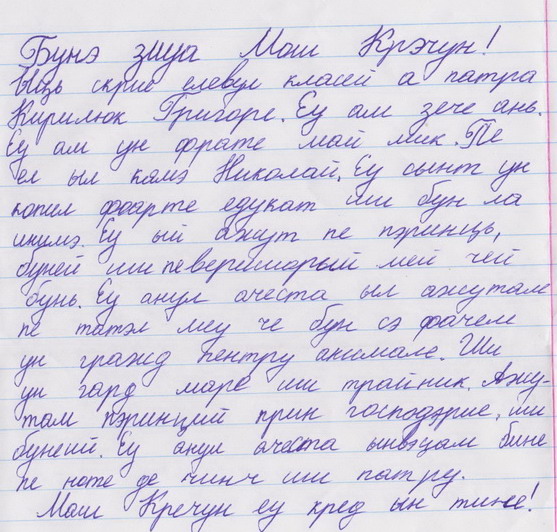 Бунэ зиуа Мош Крэчун!
Ыць скрие елевул класей а патра
Кирилюк Григоре. Еу ам зече ань.
Еу ам ун фрате май мик. Пе
ел ыл камэ Николай. Еу сынт ун
копил фоарте едукат ши бун ла
инимэ. Еу ый ажут пе пэринць,
буней ши пе веришорый мей чей
бунь. Еу анул ачеста ыл ажутам
пе татэл меу че бун сэ фачем
ун гражд пентру анимале. Ши
ун гард маре ши трайник. Ажу-
там пэринций прин господэрие, ши
бунеий. Еу анул ачеста ынвэцам бине
пе ноте де чинч ши патру.
Мош Кречун еу кред ын тине!